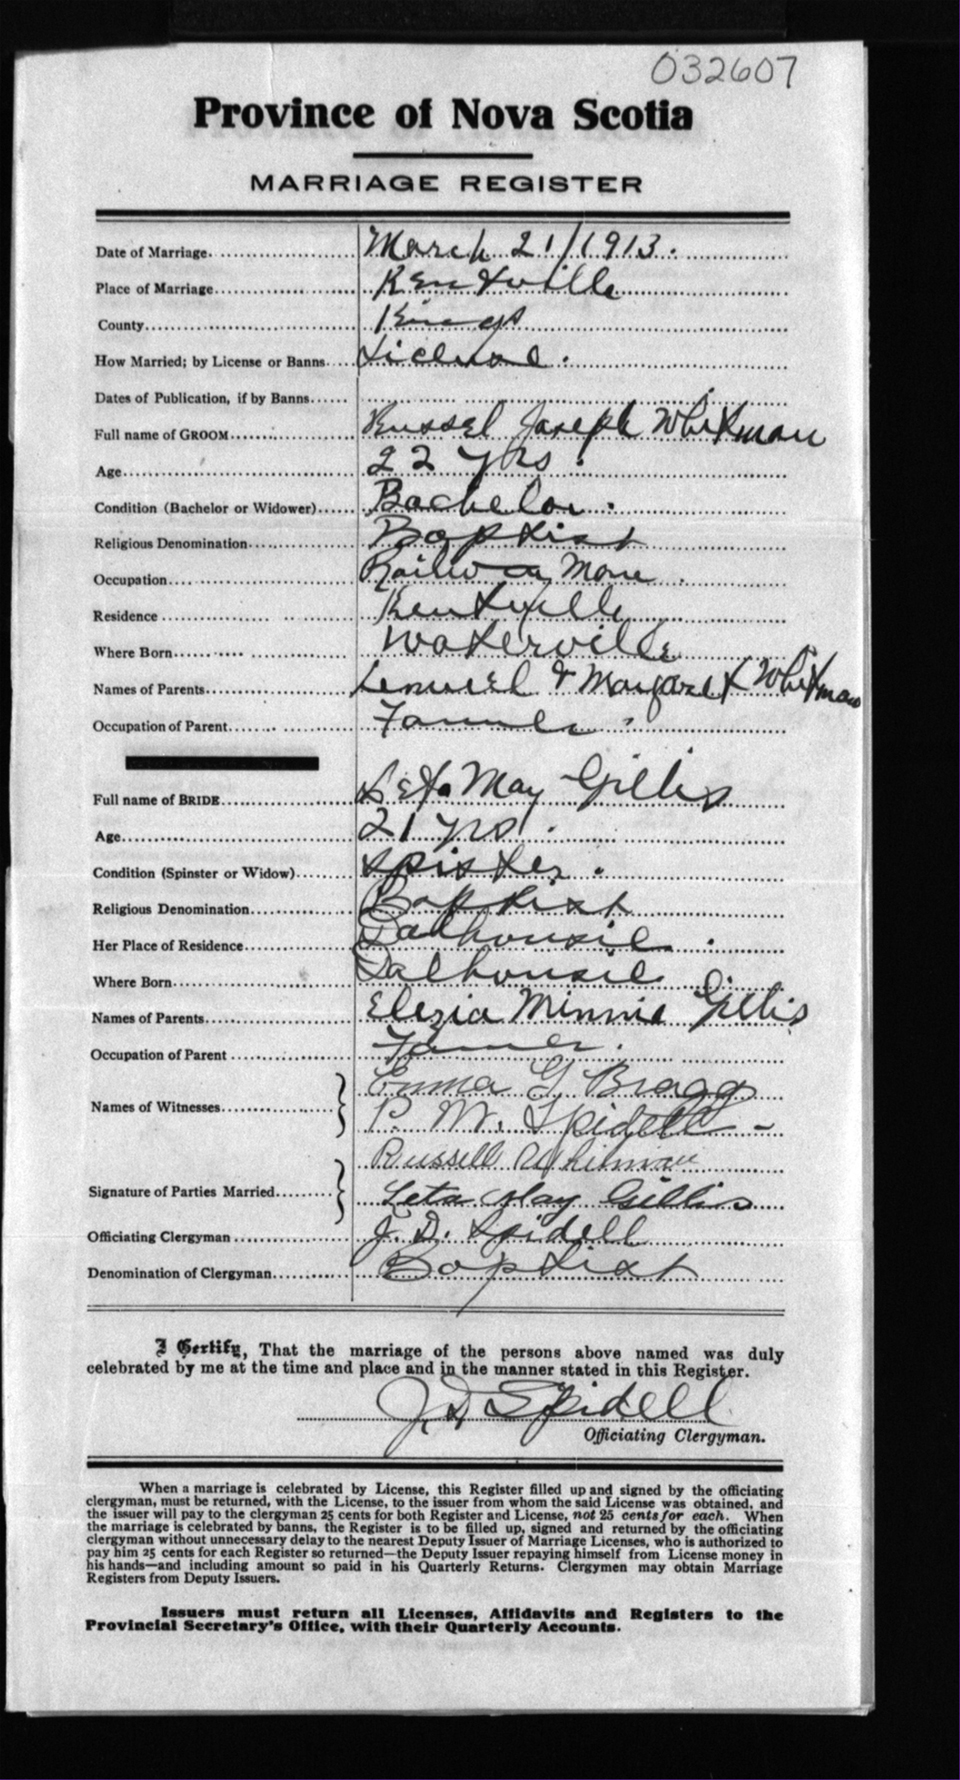 032607
Province of Nova Scotia
MARRIAGE REGISTER
Date of Marriage March 21/1913.
Place of Marriage Kentville
County Kings
How Married; by License or Banns License.
Dates of Publication, if by Banns
Full name of GROOM Russel Joseph Whitman
Age 22 yrs.
Condition (Bachelor or Widower) Bachelor.
Religious Denomination Baptist
Occupation Railway Man.
Residence Kentville
Where Born Waterville
Names of Parents Lemuel & Margaret Whitman
Occupation of Parent Farmer
Full name of BRIDE Leta May Gillis
Age 21 yrs.
Condition (Spinster or Widow) Spister.
Religious Denomination Baptist
Her Place of Residence Dalhousie.
Where Born Dalhousie
Names of Parents Elezia Minnie Gillis
Occupation of Parent Farmer.
Names of Witnesses Emma G. Bragg
P. W. Spidell
Russell Whitman
Signature of Parties Married Leta May Gillis
Officiating Clergyman J. D. Spidell
Denomination of Clergyman Baptist
I Certify, That the marriage of the persons above named was duly
celebrated by me at the time and place and in the manner stated in this Register.
J. D. Spidell
Officiating Clergyman.
When a marriage is celebrated by License, this Register filled up and signed by the officiating
clergyman, must be returned, with the License, to the issuer from whom the said License was obtained, and
the issuer will pay to the clergyman 25 cents for both Register and License, not 25 cents for each. When
the marriage is celebrated by banns, the Register is to be filled up, signed and returned by the officiating
clergyman without unnecessary delay to the nearest Deputy Issuer of Marriage Licenses, who is authorized to
pay him 25 cents for each Register so returned—the Deputy Issuer repaying himself from License money in
his hands—and including amount so paid in his Quarterly Returns. Clergymen may obtain Marriage
Registers from Deputy Issuers.
Issuers must return all Licenses, Affidavits and Registers to the
Provincial Secretary's Office, with their Quarterly Accounts.